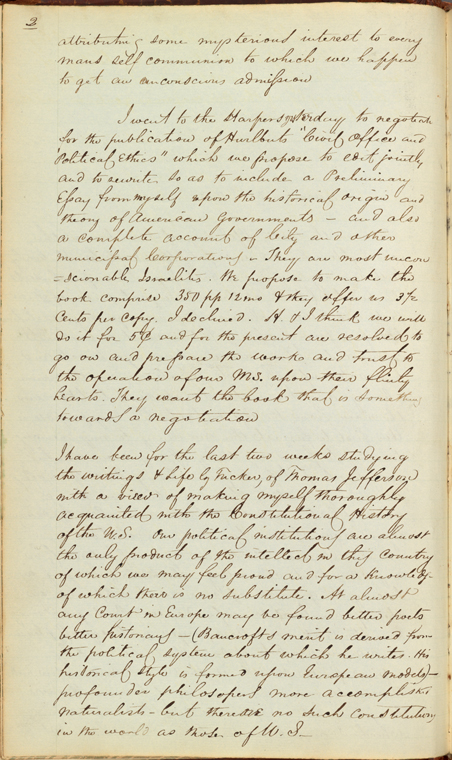 2
attributing some mysterious interest to every
mans self communion to which we happen
to get an unconscious admission
I went to the Harpers yesterday to negotiate
for the publication of Hurlbuts "Civil Office and
Political Ethics" which we propose to edit jointly
and to rewrite so as to include a Preliminary
Essay from myself upon the historical origin and
theory of American Governments - and also
a complete account of City and other
municipal Corporations - They are most uncon
=scionable Israelites. We propose to make the
book comprise 350 pp 12mo & they offer us 3 1/2
Cents per copy. I declined. H. & I think we will
do it for 5¢ and for the present are resolved to
go on and prepare the work and trust to
the operation of our M.S. upon their flinty
hearts. They want the book that is something
towards a negotiation
I have been for the last two weeks studying
the writings & Life by Tucker, of Thomas Jefferson
with a view of making myself thoroughly
acquainted with the Constitutional History
of the U.S. Our political institutions are almost
the only product of the intellect in this Country
of which we may feel proud and for a Knowledge
of which there is no substitute. At almost
any Court in Europe may be found better poets
better historians - (Bancrofts merit is derived from
the political system about which he writes. His
historical style is formed upon European models) -
profounder philosophers more accomplished
naturalists - but there are no such Constitutions
in the world as those of U.S -